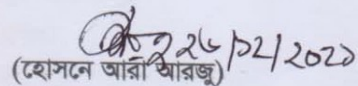 ২৬/০২/২০২০
(হোসনে আরা আরজু)